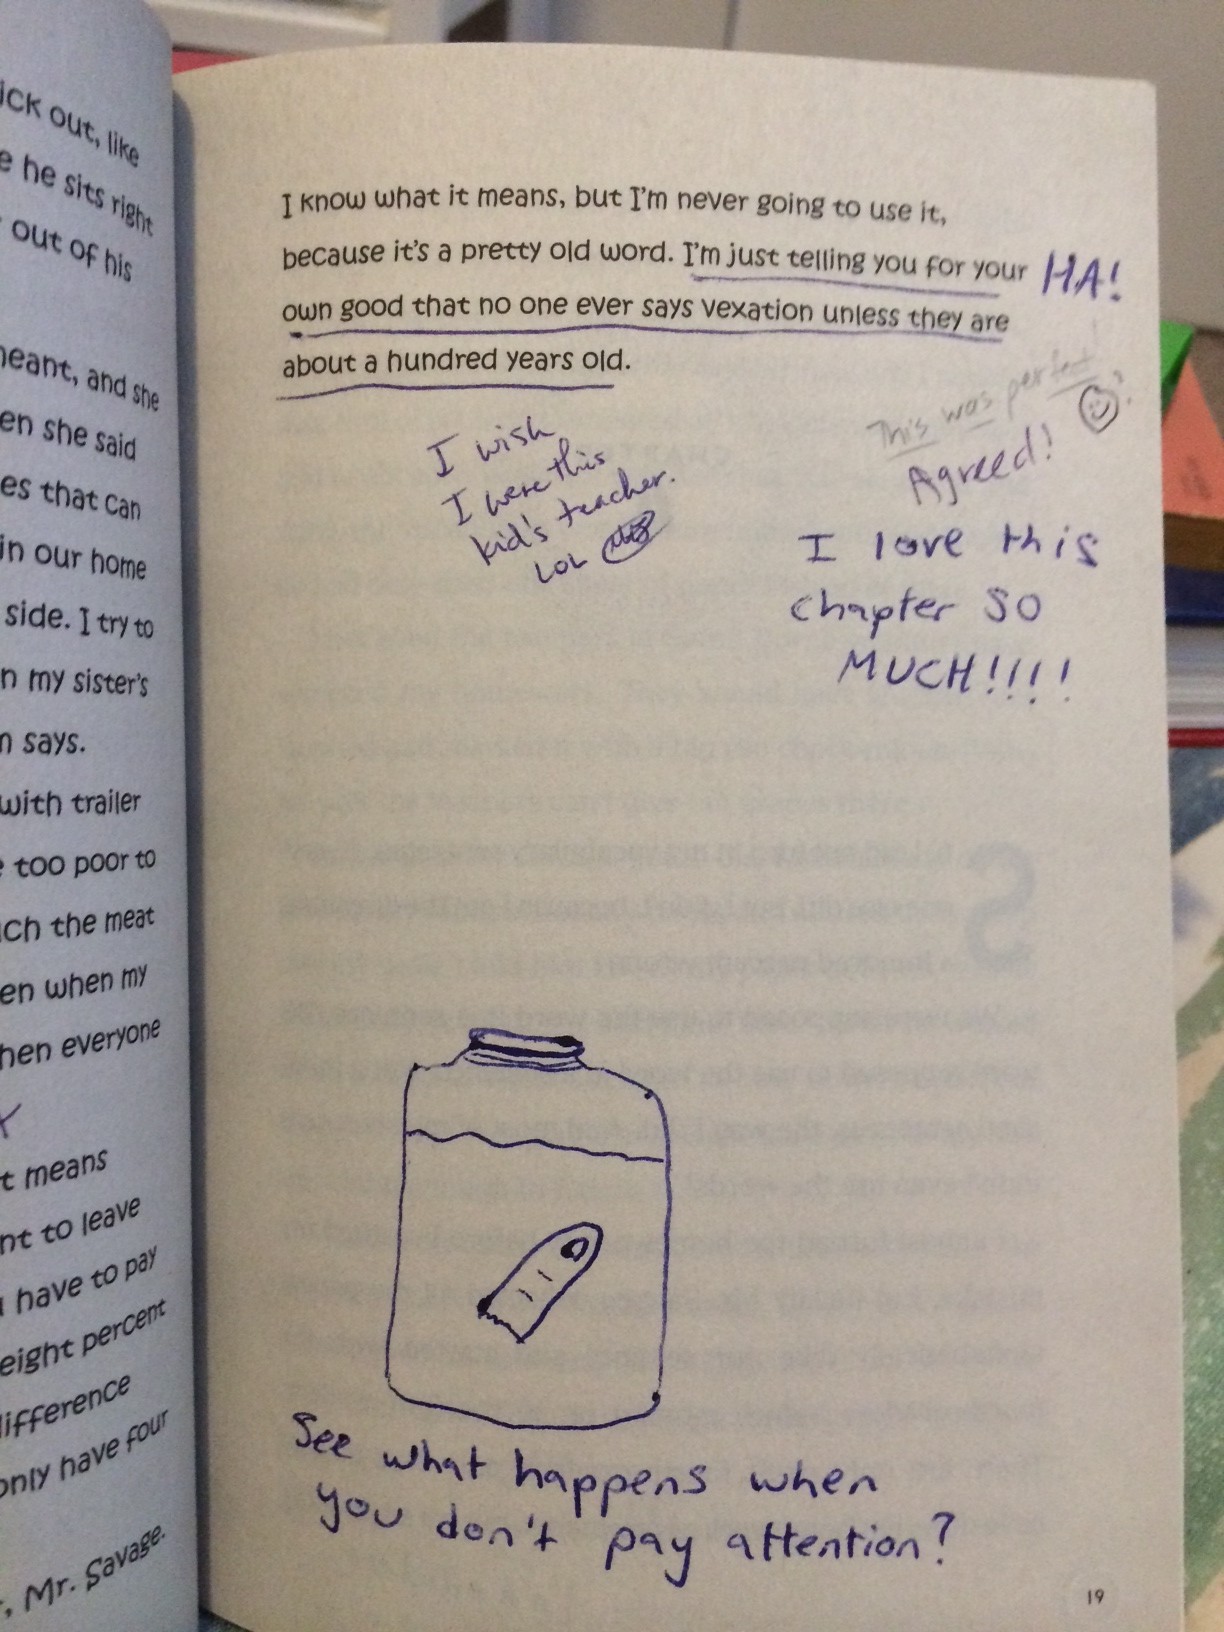 ick out, like
e he sits right
out of his
meant, and she
en she said
es that can
in our home
side. I try to
n my sister's
n says.
with trailer
too poor to
ch the meat
en when my
hen everyone
t means
nt to leave
have to pay
eight percent
difference
only have four
Mr. Savage.
I know what it means, but I'm never going to use it,
because it's a pretty old word. I'm just telling you for your
own good that no one ever says vexation unless they are
about a hundred years old.
HA!
This was perfect!
Agreed!
I wish
I were this
kid's teacher.
LOL
I love this
chapter SO
MUCH!!!!
See what happens when
you don't pay attention?
19